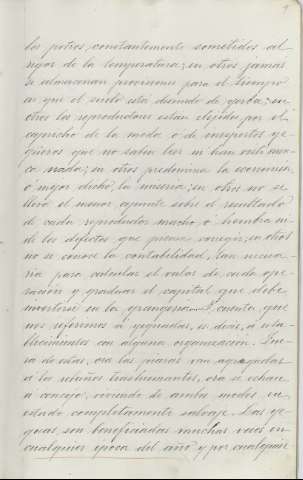 los potros, constantemente sometidos al
rigor de la temperatura; en otros jamas
se almacenan provisiones para el tiempo
en que el suelo está desnudo de yerba; en
otros los reproductores estan elejidos por el
capricho de la moda o de inespertos ye-
güeros que no saben leer ni han visto nun-
ca nada; en otros predomina la economia
ó mejor dicho, la miseria; en otros no se
lleva el menor apunte sobre el resultado
de cada reproductor macho, ó hembra ni
de los defectos que precise corregir; en otros
no se conoce la contabilidad, tan necesa-
ria para calcular el valor de cada ope-
racion y graduar el capital que debe
invertirse en la grangeria. Y cuenta que
nos referimos á yeguadas, es decir, á esta-
blecimientos con alguna organizacion. Fue-
ra de ellas, ora las piaras van agregadas
á los rebaños trashumantes, ora se echan
á concejo, viviendo de ambos modos en
estado completamente salvaje. Las ye-
guas son beneficiadas muchas veces en
cualquier época del año y por cualquier